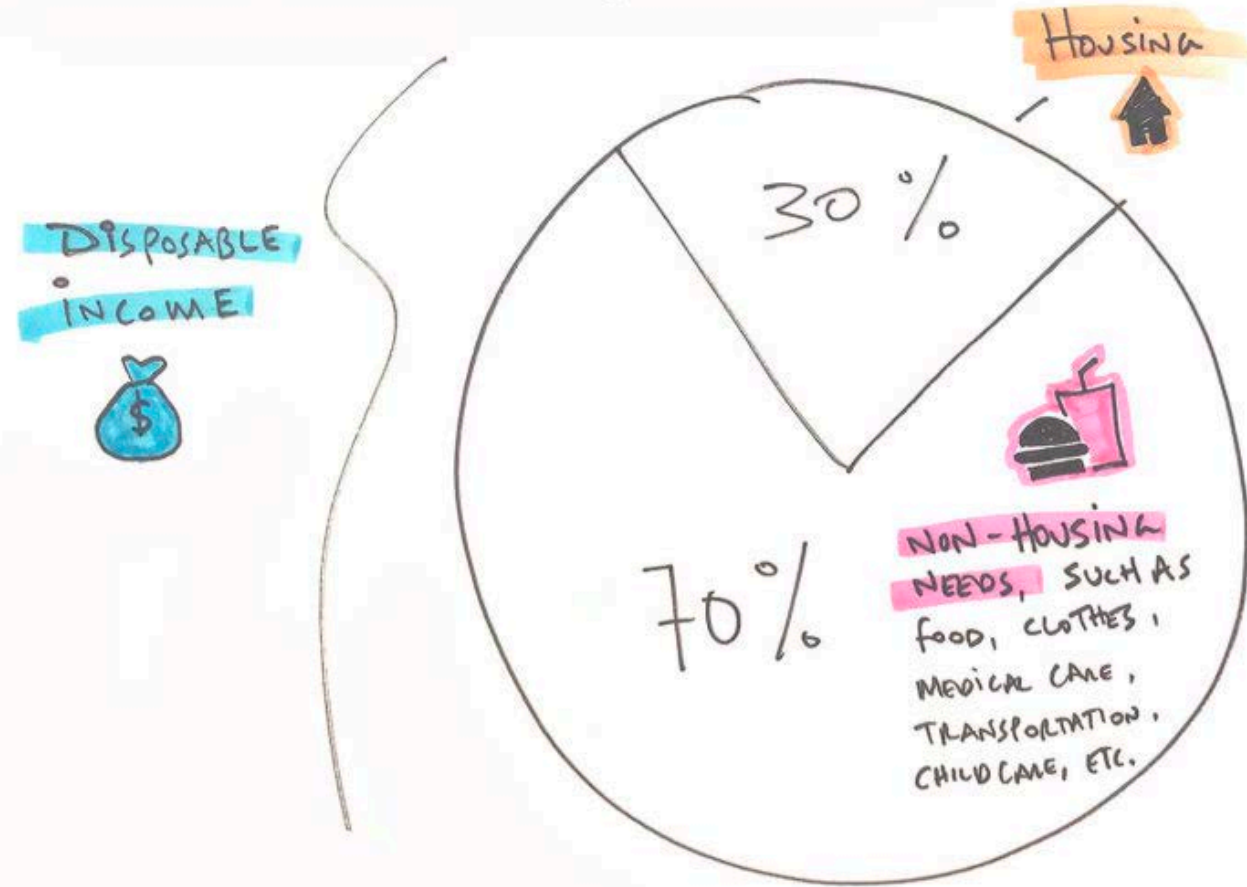 Housing
30%
Disposable
income
$
70%
Non-Housing
Needs, such as
food, clothes,
medical care,
transportation,
childcare, etc.